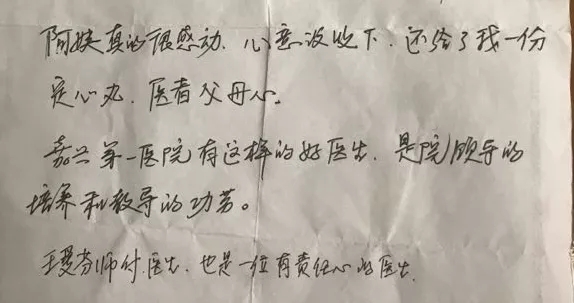 阿姨真的很感动、心意没收下、还给了我一份
定心丸、医者父母心。
嘉兴第一医院有这样的好医生、是院领导的
培养和教导的功劳。
王曼芬师付医生、也是一位有责任心的医生